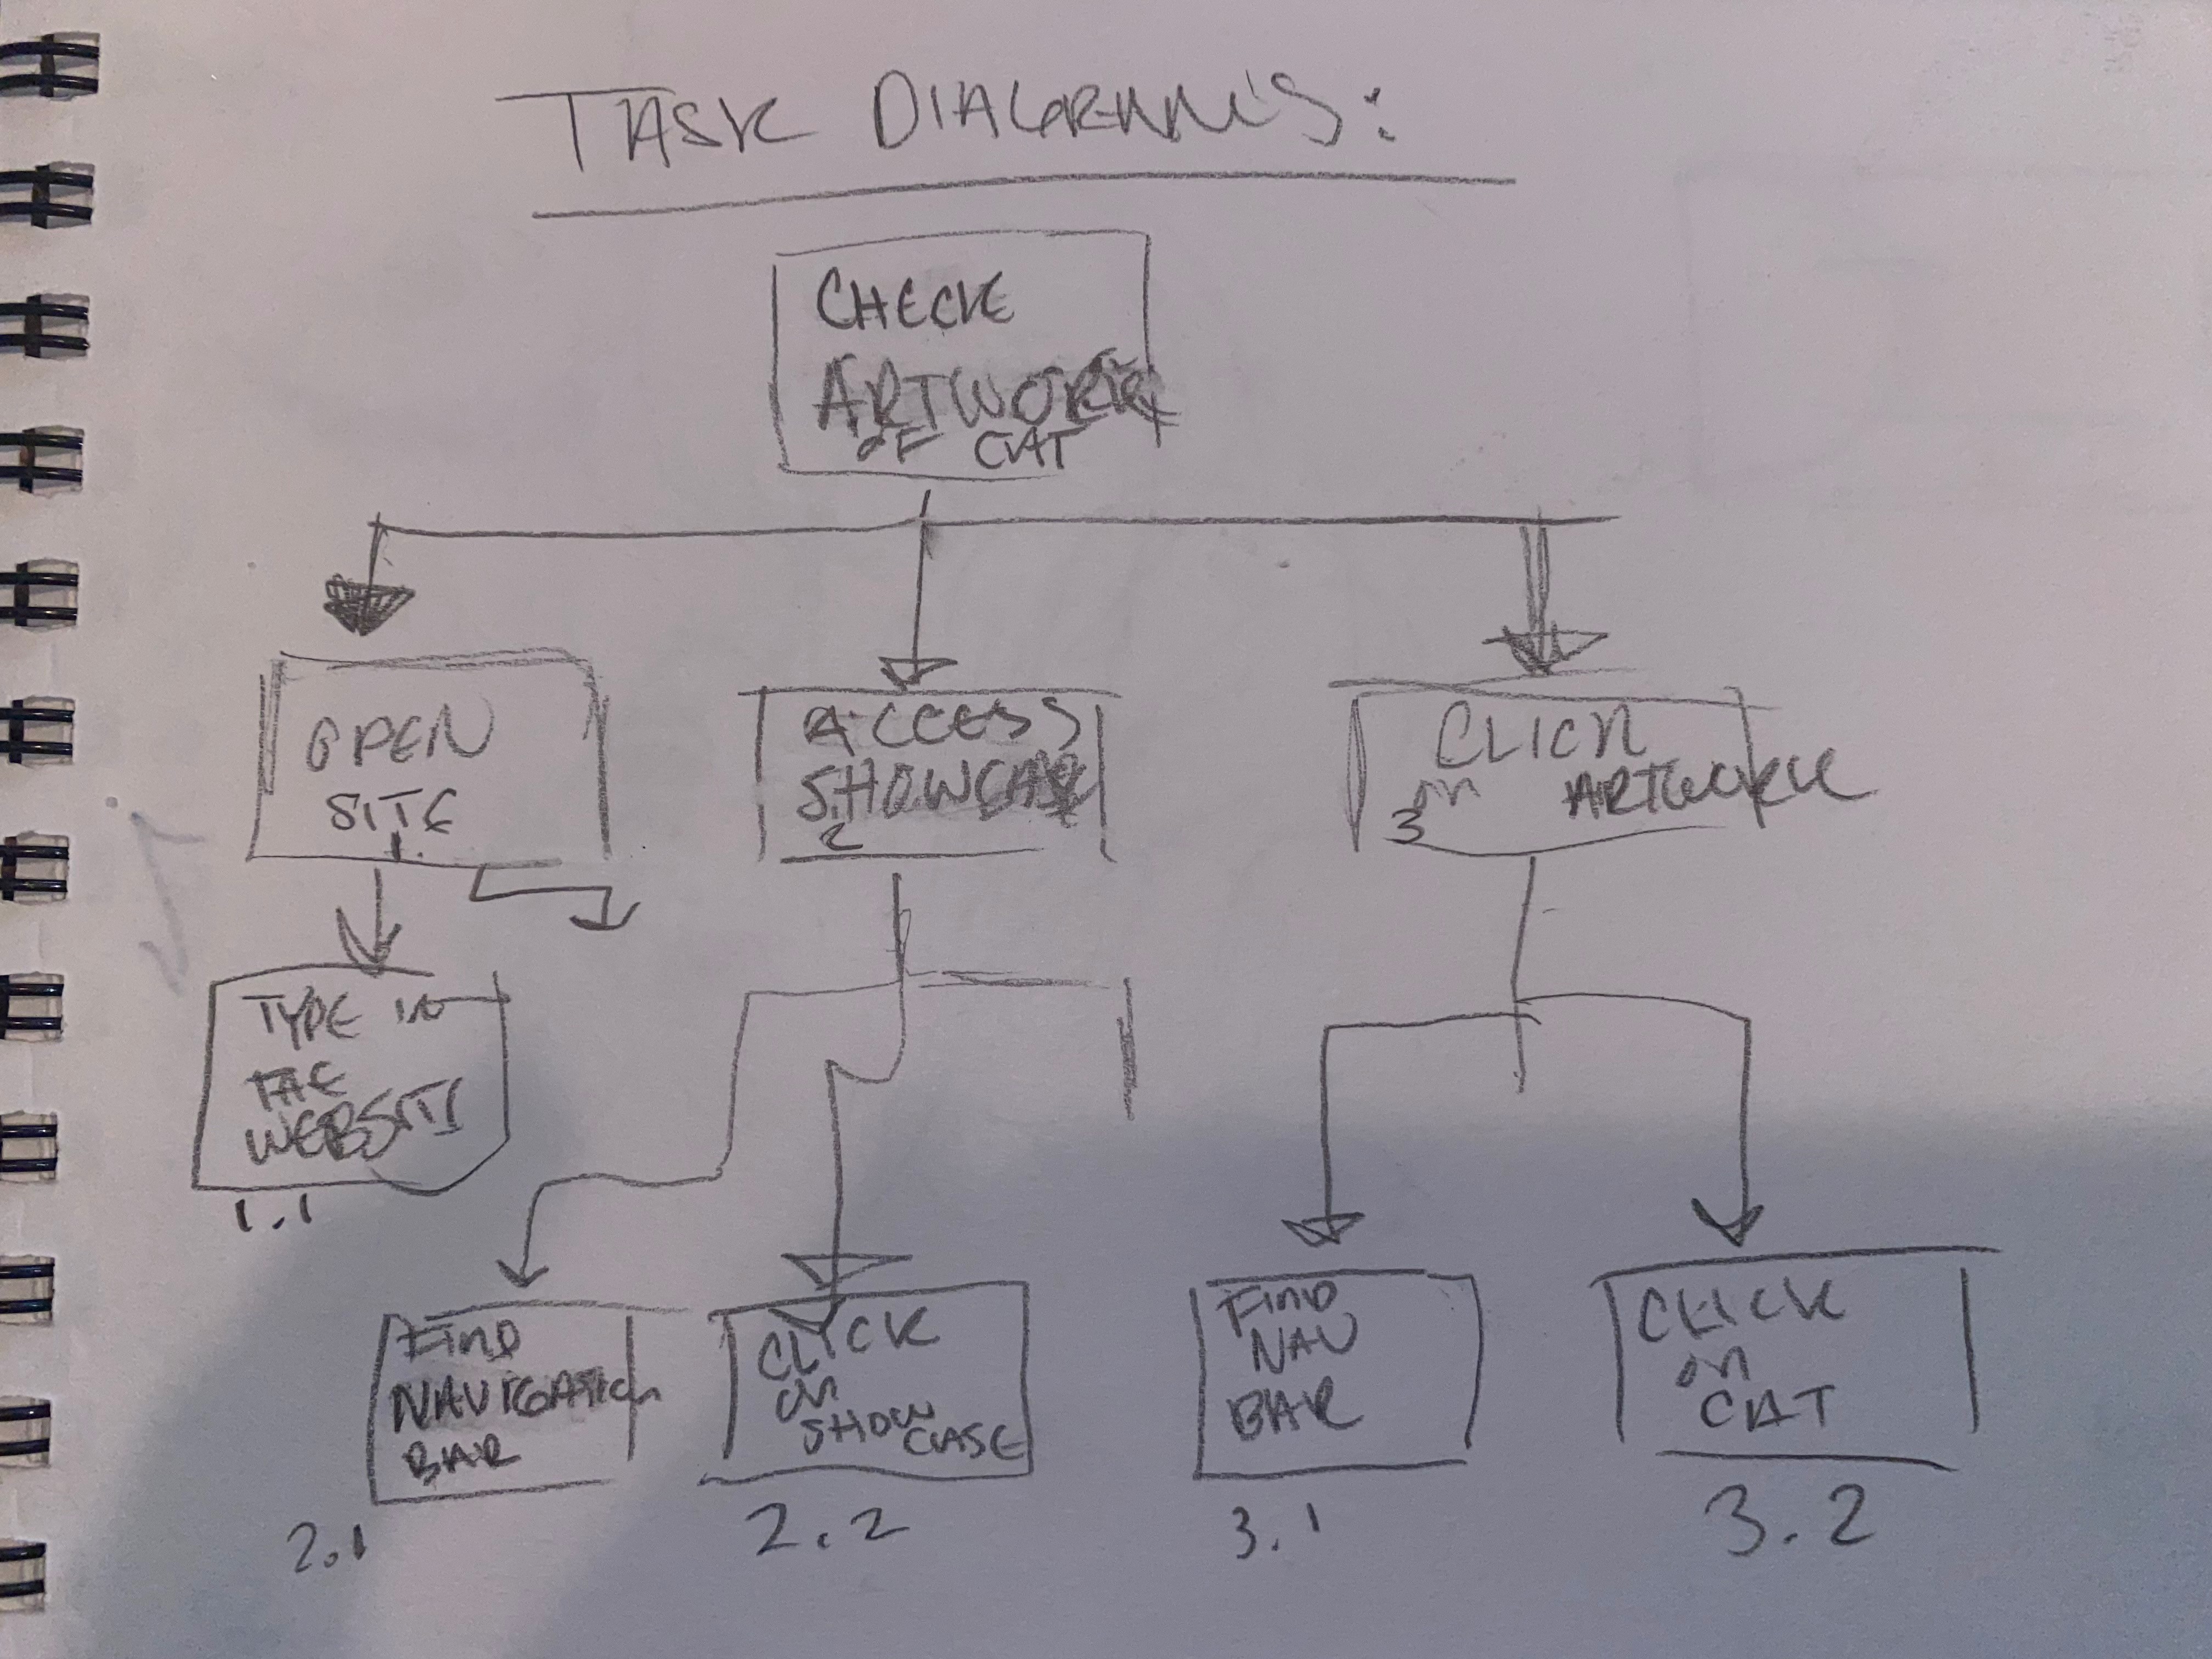 TASK DIAGRAMS:
CHECK
ARTWORK
OF CAT
OPEN
SITE
1.
ACCESS
SHOWCASE
2
CLICK
on ARTWORK
3
TYPE IN
THE
WEBSITE
1.1
FIND
NAVIGATION
BAR
2.1
CLICK
on
SHOW
CASE
2.2
FIND
NAV
BAR
3.1
CLICK
on
CAT
3.2